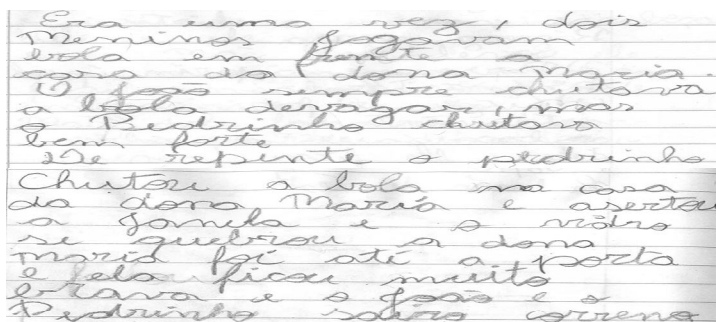 Era uma vez, dois
meninos jogavam
bola em frente a
casa da dona Maria.
O João sempre chutava
a bola devagar, mas
o Pedrinho chutava
bem forte
De repente o pedrinho
Chutou a bola na casa
da dona Maria e asertou
a janela e o vidro
se quebrou a dona
maria foi até a porta
e ela ficou muito
brava e o João e o
Pedrinho sairo correno